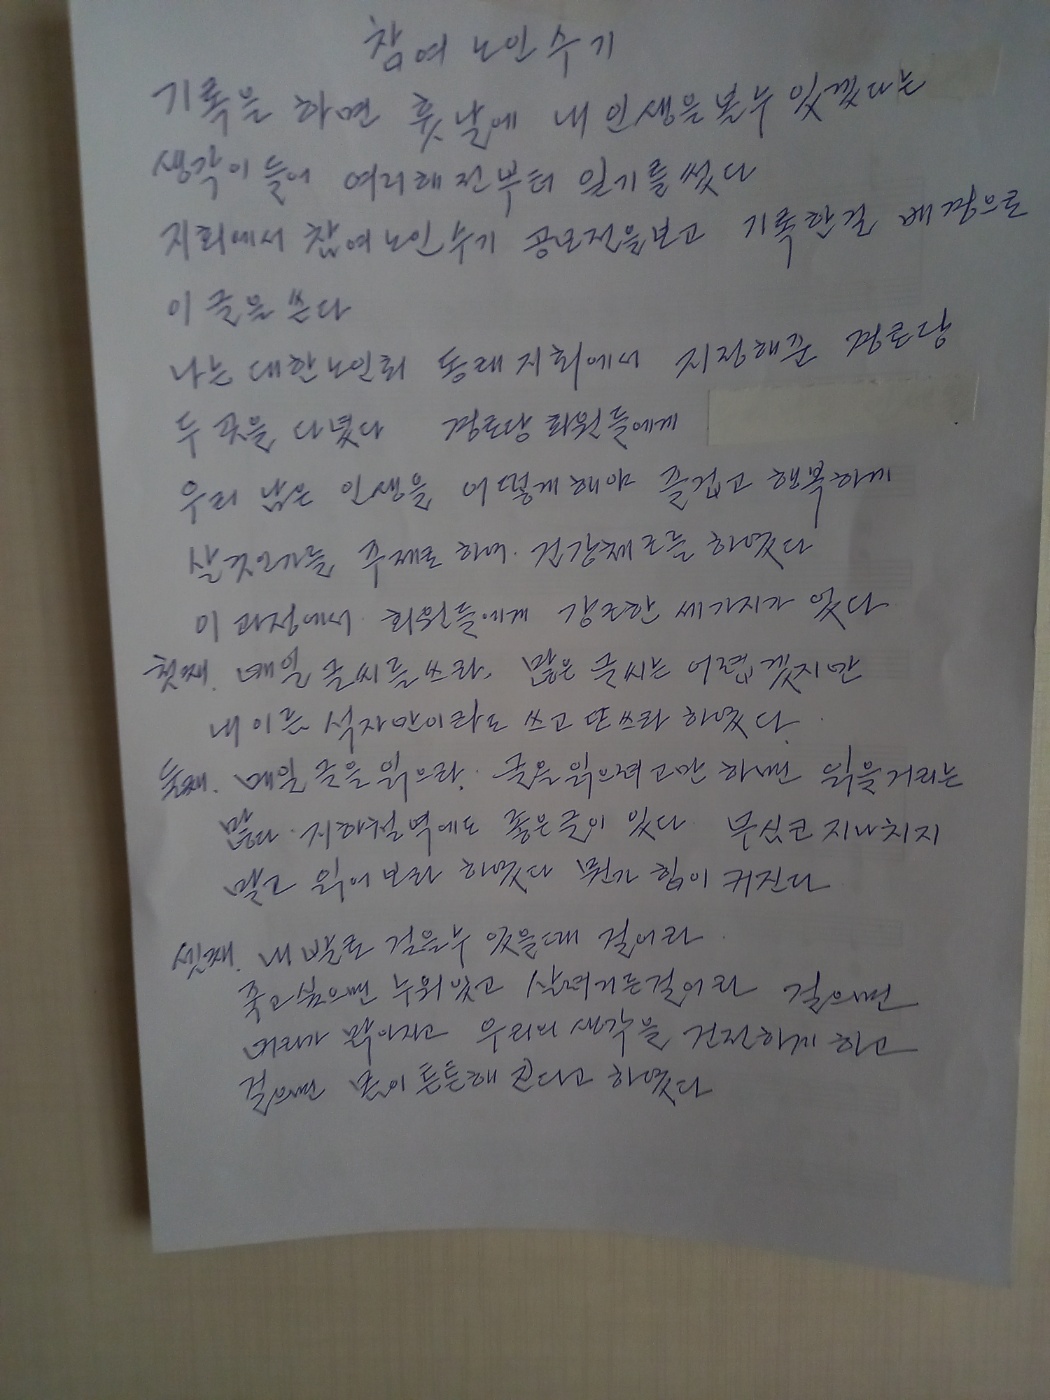 참여 노인 수기
기록을 하면 훗날에 내 인생을 볼수 있겠다는
생각이 들어 여러해 전부터 일기를 썼다
지회에서 참여노인수기 공모전을보고 기록한걸 배경으로
이 글을 쓴다
나는 대한노인회 동래지회에서 지정해준 경로당
두 곳을 다녔다 경로당 회원들에게
우리 남은 인생을 어떻게해야 즐겁고 행복하게
살것인가를 주제로 하여. 건강체조를 하였다
이 과정에서 회원들에게 강조한 세가지가 있다
첫째. 매일 글씨를 쓰라. 많은 글씨는 어렵겠지만
내 이름 석자만이라도 쓰고 또 쓰라 하였다.
둘째. 매일 글을 읽으라. 글을 읽으려고만 하면 읽을거리는
많다. 지하철 벽에도 좋은글이 있다. 무심코 지나치지
말고 읽어 보라 하였다 뭔가 힘이 커진다
셋째. 내 발로 걸을수 있을때 걸어라.
죽고싶으면 누워있고 살려거든걸어라 걸으면
머리가 맑아지고 우리의 생각을 건전하게 하고
걸으면 몸이 튼튼해 진다고 하였다